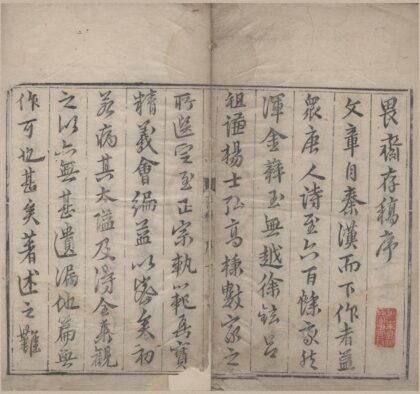 畏齋存稿序
文章自秦漢而下作者益
眾唐人詩至六百餘家
渾金玉無越徐鉉呂
祖謙楊士弘高棅數家之
所選定至正宗軌範
精義會編益以密矣初
若病其太隘及得全集觀
之無甚遺漏他篇無
作可也甚矣著述之難